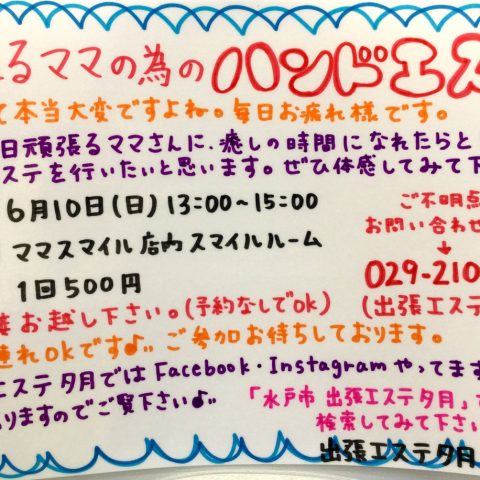 るママの為のハンドエス
て本当大変ですよね。毎日お疲れ様です。
日頑張るママさんに、癒しの時間になれたらと
ステを行いたいと思います。ぜひ体感してみて下
6月10日(日) 13:00~15:00
ママスマイル店内スマイルルーム
1日500円
ご不明点
お問い合わせ
↓
029-210
(出張エステ
接お越し下さい。(予約なしでok)
連れokです♪ ご参加お待ちしております。
エステ夕月ではFacebook・Instagramやってます
おりますのでご覧下さい♪
「水戸市 出張エステ夕月」
検索してみて下さい
出張エステ夕月